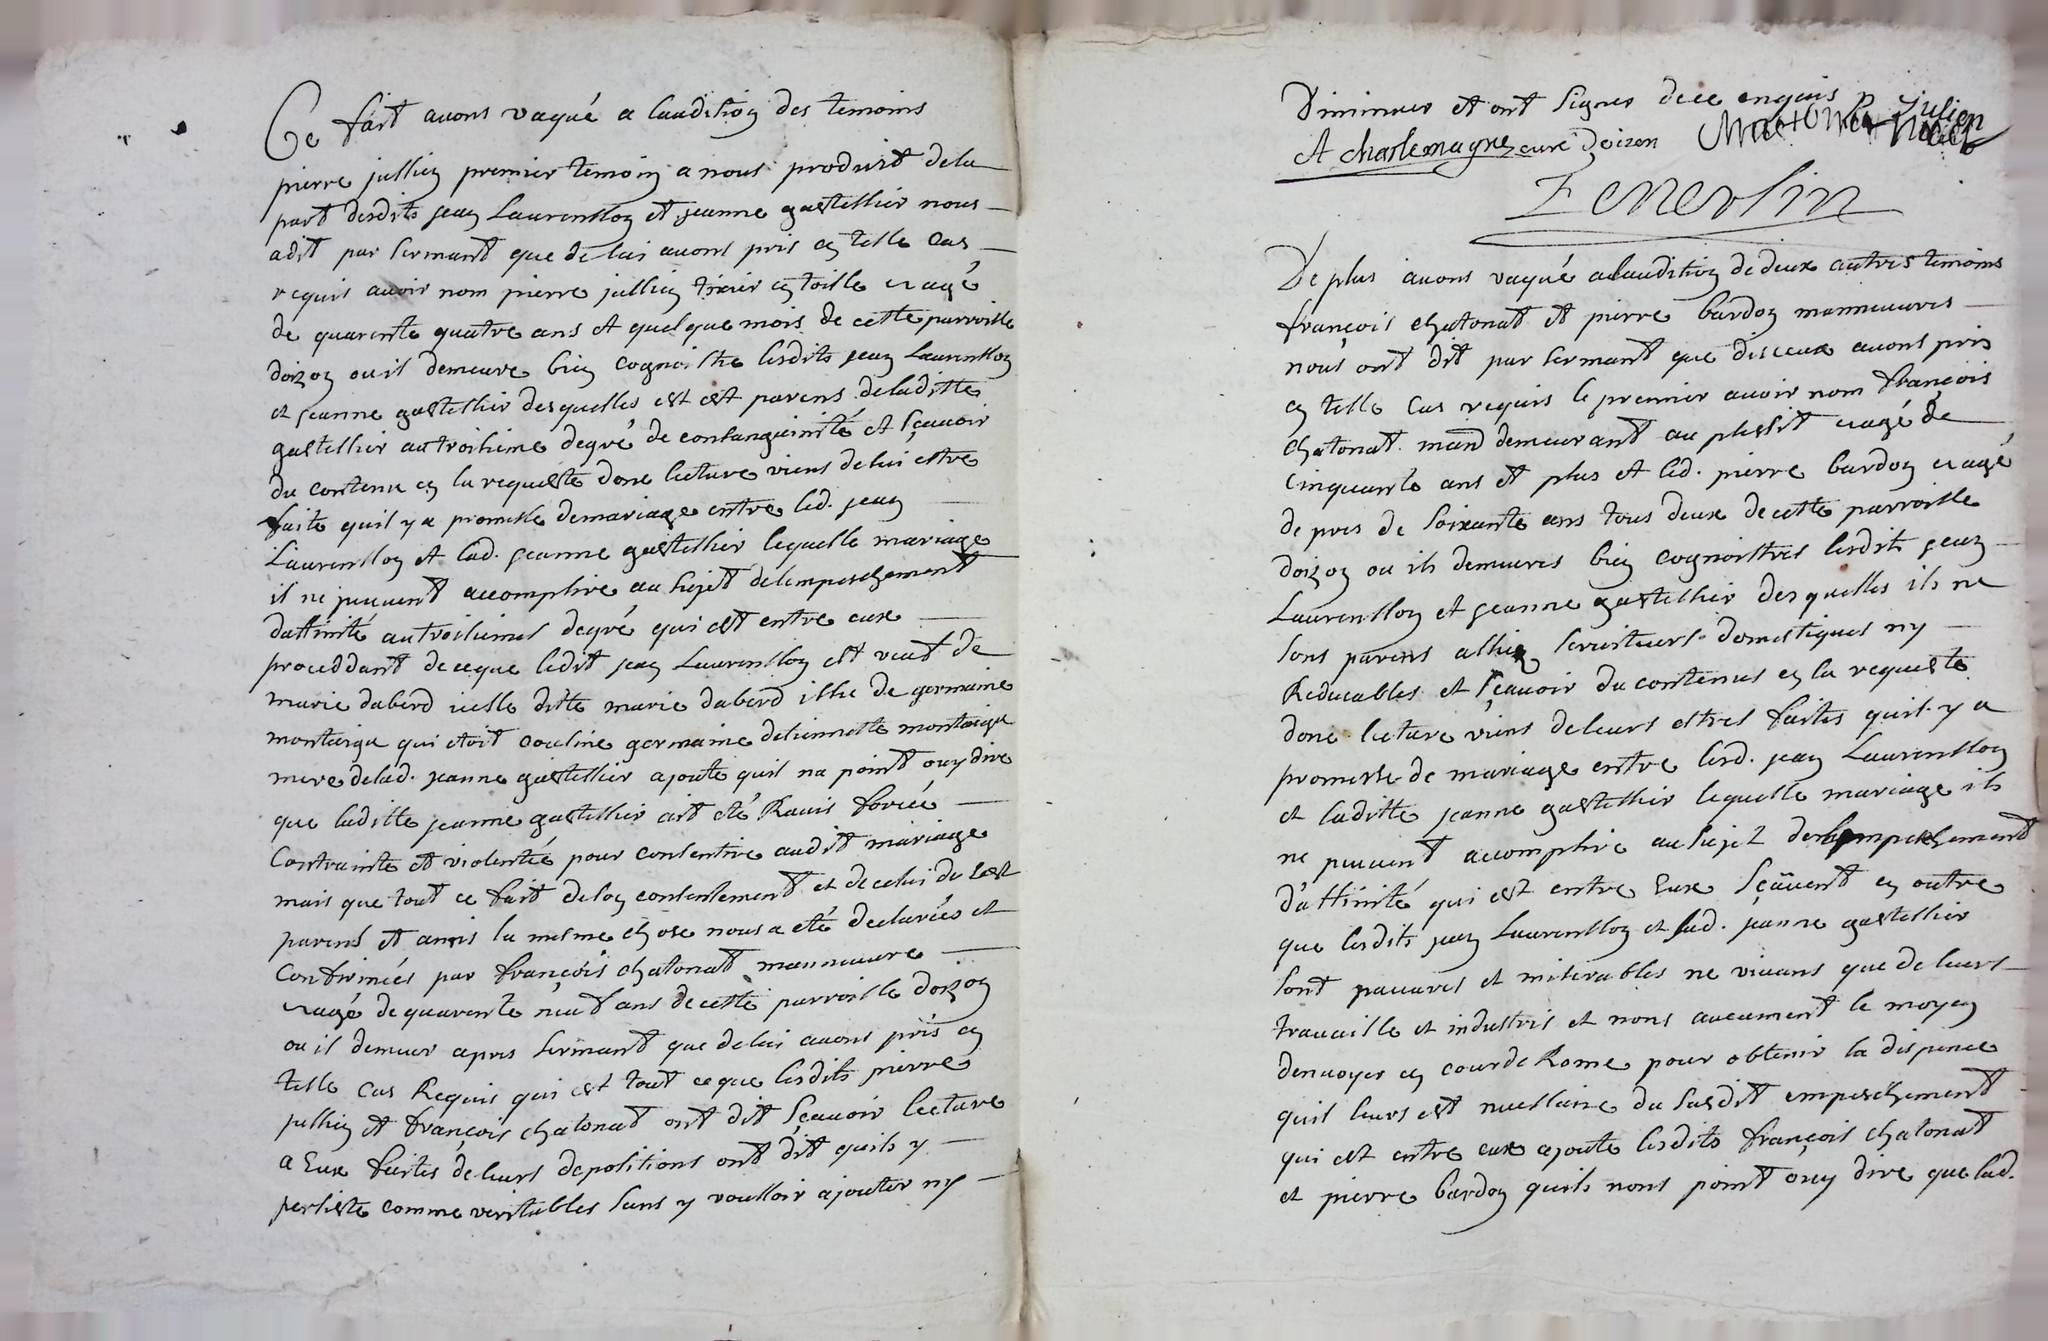 Ce fait avons vaqué a laudition des temoins
pierre jullien premier temoin a nous produit de la
part desdits jean Laurensson et jeanne gastellier nous
a dit par sermant que de lui avons pris en telle cas
requis avoir nom pierre jullien tixier en toille eagé
de quarente quatre ans et quelque mois de cette parroisse
doizon ou il demeure bien cognoistre lesdits jean Laurensson
et jeanne gastellier desquelles est est parens de laditte
gastellier au troisieme degré de consanguinité et sçavoir
du contenu en la requeste donc lecture viens de lui estre
faite quil y a promesse de mariage entre led. jean
Laurensson et lad. jeanne gastellier lequelle mariage
il ne peuvent accomplire au sujet de lempeschement
daffinité au troisiemes degré qui est entre eux
proceddant de ce que ledit jean Laurensson est veuf de
marie daberd icelle ditte marie daberd issue de germaine
montaigu qui etoit cousine germaine detiennette montaigu
mere de lad. jeanne gastellier ajoute quil na point ouy dire
que laditte jeanne gastellier ait eté Ravis forcée
Contrainte et violentée pour consentire audit mariage
mais que tout ce fait de son consentement et de celui de ses
parens et amis la mesme chose nous a eté declarées et
Confirmées par françois chatonat manneuvre
eagé de quarente neuf ans de cette parroisse doizon
ou il demeur apres sermant que de lui avons pris en
telle cas Requis qui est tout ce que lesdits pierre
jullien et françois chatonat ont dit sçavoir lecture
a Eux faites de leurs depositions ont dit quils y
persiste comme veritables sans y voulloir ajouter ny
Diminuer et ont signer de ce enquis p Julien
A charlemagne curé doizon
De plus avons vaqué a laudition de deux autres temoins
françois chatonat et pierre bardon manneuvres
nous ont dit par sermant que disceux avons pris
en telle cas requis le premier avoir nom françois
chatonat man demeurant au plessit eagé de
Cinquante ans et plus et led. pierre bardon eagé
de pres de soixante ans tous deux de cette parroisse
doizon ou ils demeures bien cognoistres lesdits jean
Laurensson et jeanne gastellier des quelles ils ne
sons parens alliez serviteurs domestiques ny
Reducables et sçavoir du contenus en la requeste
donc lecture viens de leurs estres faites quil y a
promesse de mariage entre lesd. jean Laurensson
et laditte jeanne gastellier lequelle mariage ils
ne peuvent accomplire au sujet de lempeschement
d'affinité qui est entre Eux sçavent en outre
que lesdits jean Laurensson et lad. jeanne gastellier
sont pauvres et miserables ne vivans que de leurs
travaille et industris et nons aucument le moyen
denvoyer en cour de Rome pour obtenir la dispence
quil leurs est nuessaire du susdit empeschement
qui est entre eux ajoute lesdits françois chatonat
et pierre bardon quils nons point ouy dire que lad.